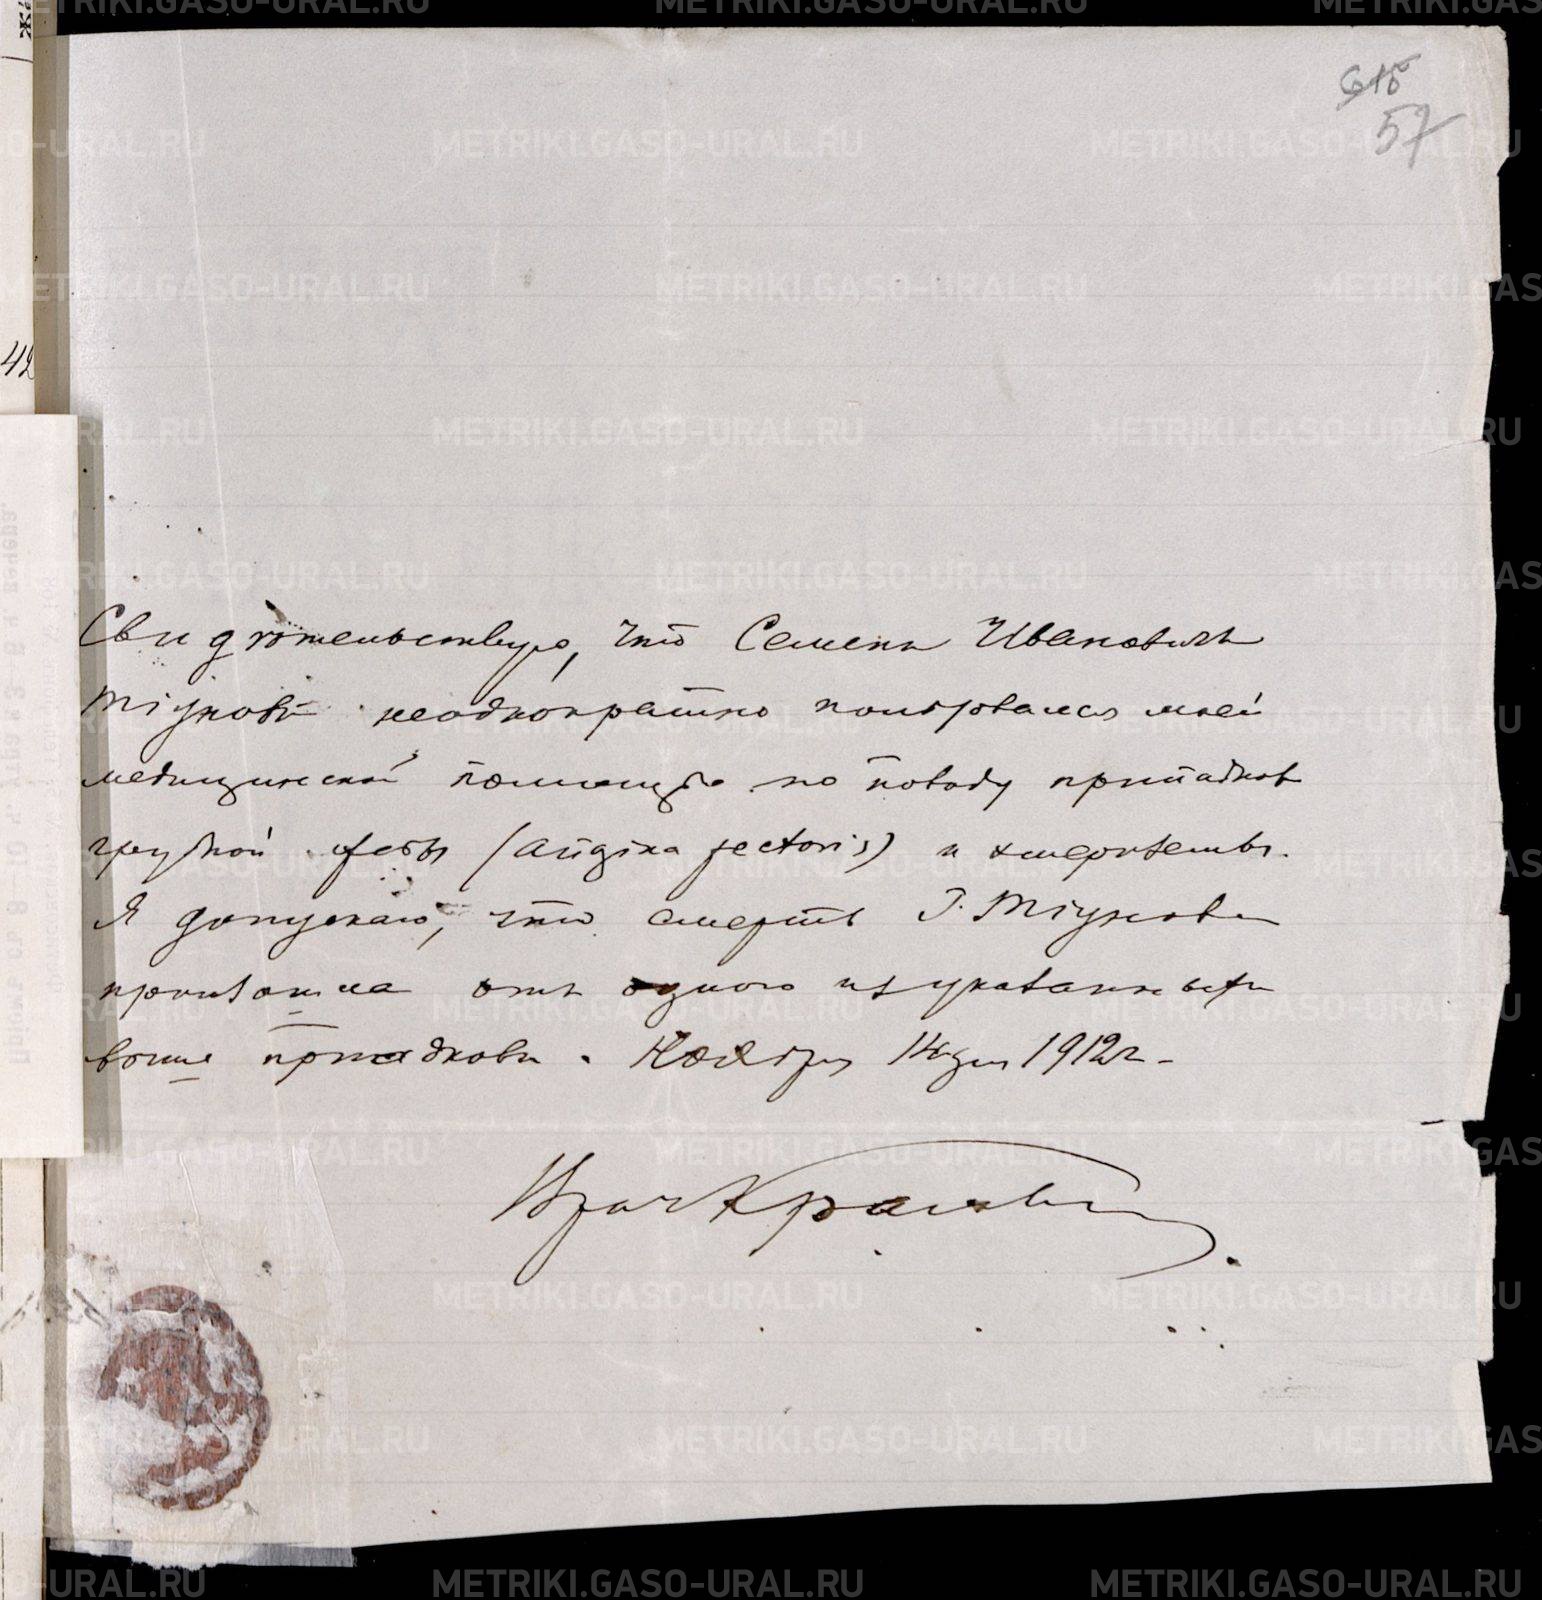 615
57
42
Свидѣтельствую, что Семенъ Ивановичъ
Тіуновъ неоднократно пользовался моей
медицинской помощью по поводу припадковъ
грудной жабы (angina pectoris) и
Я допускаю, что смерть Г. Тіунова
произошла отъ одного изъ указанныхъ
выше припадковъ. Ноября 14 дня 1912 г.
Врач